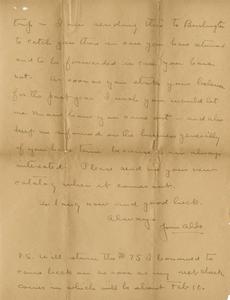 trip. I am sending this to Burlington
to catch you there in case you have
and to be forwarded in case you have
not. As soon as you strike your balance
for the past year I wish you would let
me know how you came out - and also
keep me informed on the business generally
if you have time because I am always
interested. Please send me your new
catalog when it comes out.
So long now and good luck.
Always
P.S. Will return the $75 I borrowed to
come back on as soon as my next check
comes in which will be about Feb 10.